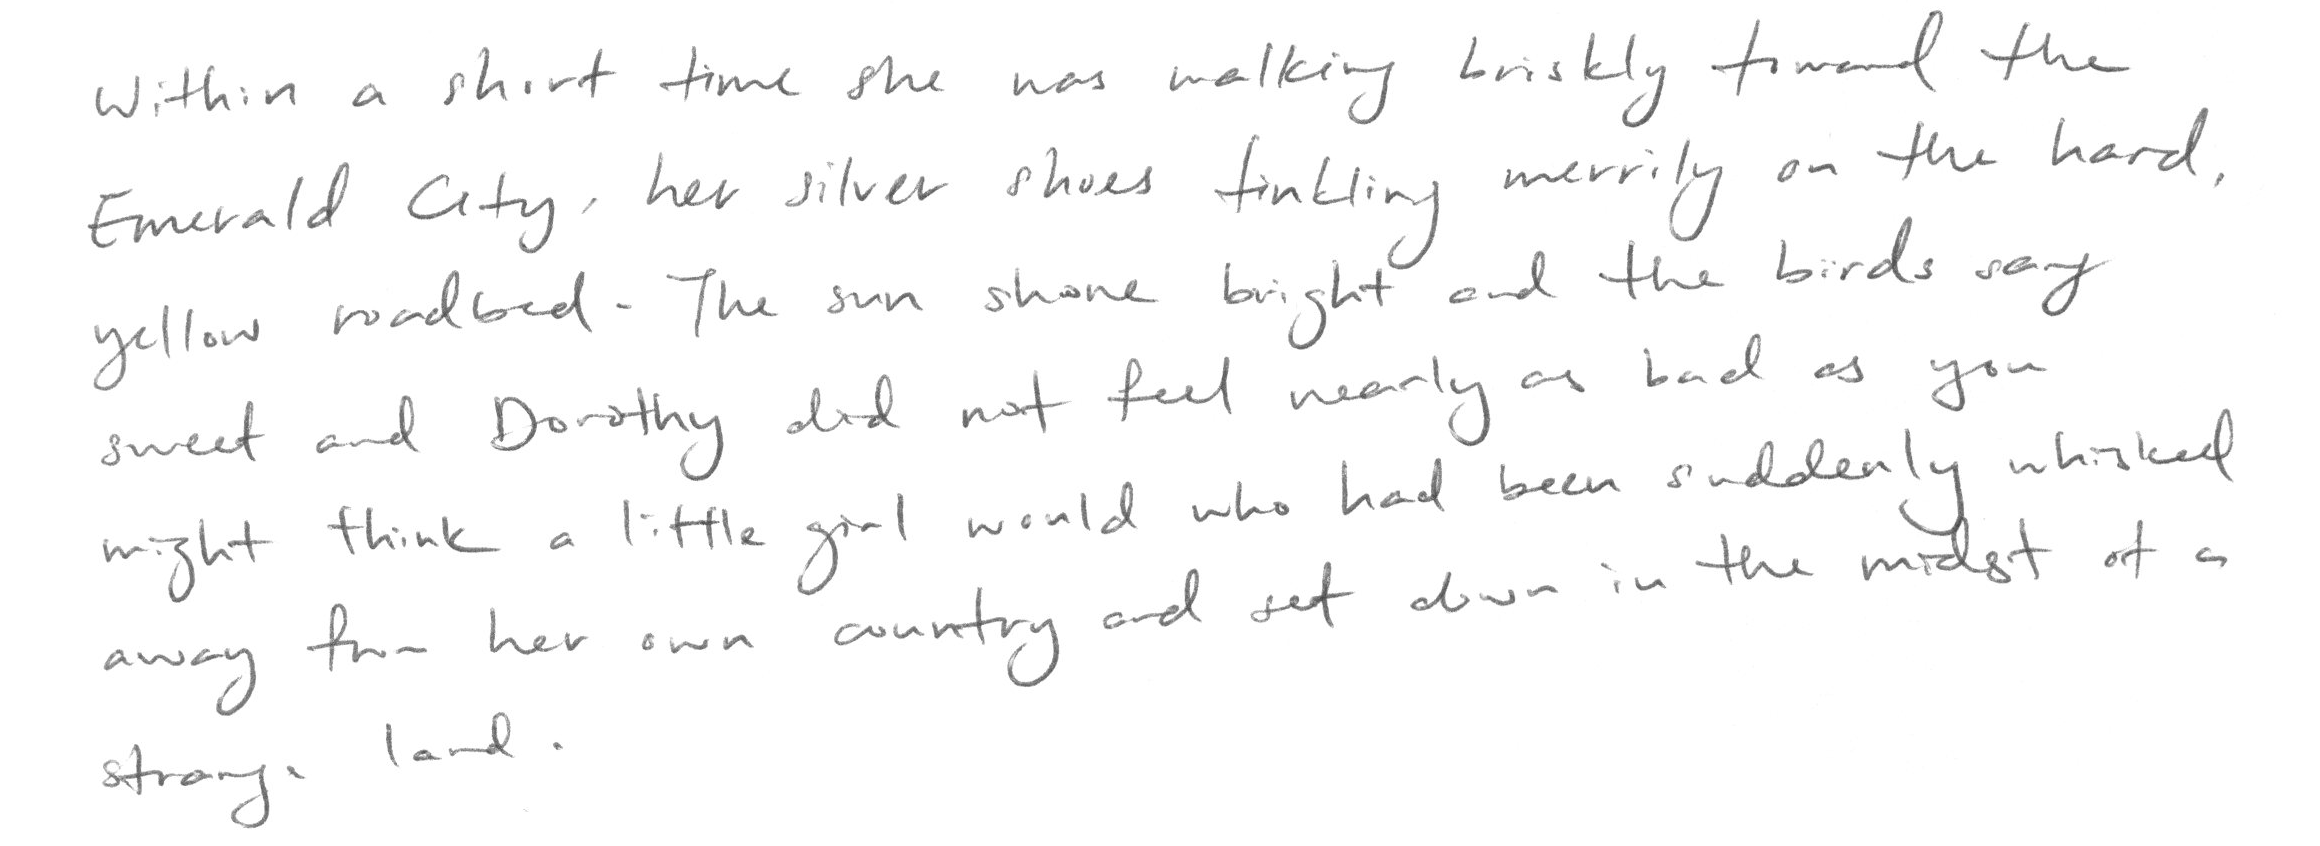 Within a short time she was walking briskly toward the
Emerald City, her silver shoes tinkling merrily on the hard,
yellow roadbed. The sun shone bright and the birds sang
sweet and Dorothy did not feel nearly as bad as you
might think a little girl would who had been suddenly whisked
away from her own country and set down in the midst of a
strange land.